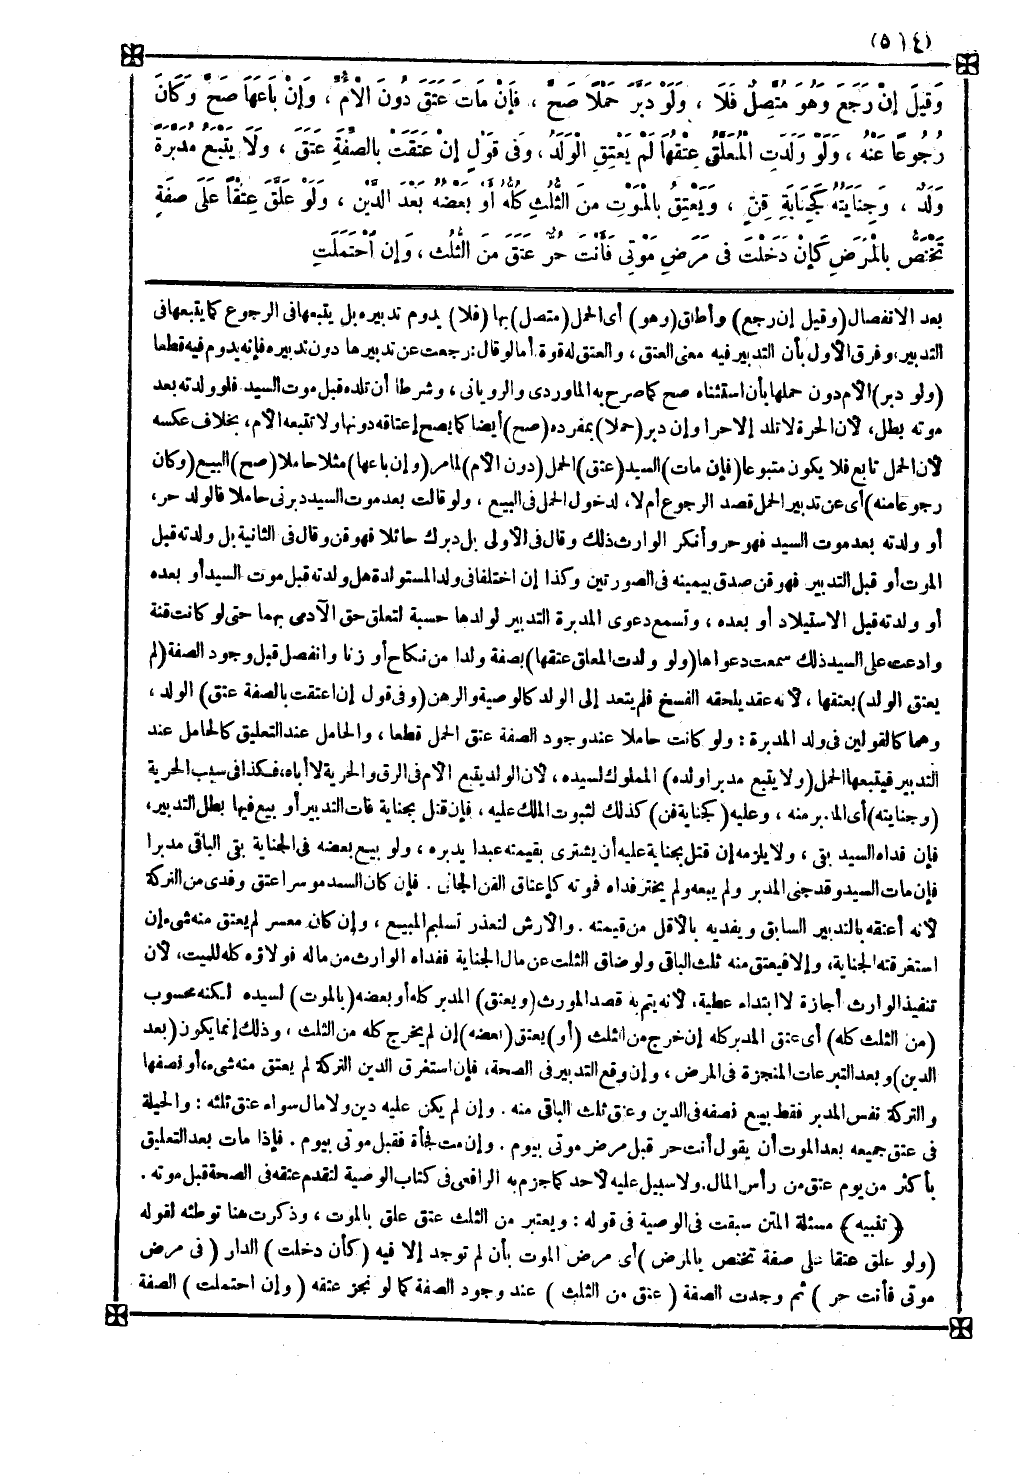 (٥١٤)
وَقِيلَ إِنْ رَجَعَ وَهُوَ مُتَّصِلٌ فَلَا ، وَلَوْ دَبَّرَ حَمْلًا صَحَّ ، فَإِنْ مَاتَ عَتَقَ دُونَ الْأُمِّ ، وَإِنْ بَاعَهَا صَحَّ وَكَانَ
رُجُوعًا عَنْهُ ، وَلَوْ وَلَدَتِ الْمُعَلَّقُ عِتْقُهَا لَمْ يَعْتِقِ الْوَلَدُ ، وَفِى قَوْلٍ إِنْ عَتَقَتْ بِالصِّفَةِ عَتَقَ ، وَلَا يَتْبَعُ مُدَبَّرَةً
وَلَدٌ ، وَجِنَايَتُهُ كَجِنَايَةِ قِنٍّ ، وَيَعْتِقُ بِالْمَوْتِ مِنَ الثُّلُثِ كُلُّهُ أَوْ بَعْضُهُ بَعْدَ الدَّيْنِ ، وَلَوْ عَلَّقَ عِتْقًا عَلَى صِفَةٍ
تَخْتَصُّ بِالْمَرَضِ كَإِنْ دَخَلْتَ فِى مَرَضِ مَوْتِى فَأَنْتَ حُرٌّ عَتَقَ مِنَ الثُّلُثِ ، وَإِنِ احْتَمَلَتِ
بعد الانفصال (وقيل إن رجع) وأطلق (وهو) أى الحمل (متصل) بها (فلا) يدوم تدبيره بل يتبعها فى الرجوع كما يتبعها فى
التدبير ، وفرق الأول بأن التدبير فيه معنى العتق ، والعتق له قوة . أما لو قال : رجعت عن تدبيرها دون تدبيره فإنه يدوم فيه قطعا
(ولو دبر) الأم دون حملها بأن استثناه صح كما صرح به الماوردى والرويانى ، وشرطا أن تلده قبل موت السيد فلو ولدته بعد
موته بطل ، لأن الحرة لا تلد إلا حرا وإن دبر (حملا) بمفرده (صح) أيضا كما يصح إعتاقه دونها ولا تتبعه الأم ، بخلاف عكسه
لأن الحمل تابع فلا يكون متبوعا (فإن مات) السيد (عتق) الحمل (دون الأم) لما مر (وإن باعها) مثلا حاملا (صح) البيع (وكان
رجوعا منه) أى عن تدبير الحمل قصد الرجوع أم لا ، لدخول الحمل فى البيع ، ولو قالت بعد موت السيد دبرنى حاملا فالولد حر ،
أو ولدته بعد موت السيد فهو حر وأنكر الوارث ذلك وقال فى الأولى بل دبرك حائلا فهو قن وقال فى الثانية بل ولدته قبل
الموت أو قبل التدبير فهو قن صدق بيمينه فى الصورتين وكذا إن اختلفا فى ولد المستولدة هل ولدته قبل موت السيد أو بعده
أو ولدته قبل الاستيلاد أو بعده ، وتسمع دعوى المدبرة التدبير لولدها حسبة لتعلق حق الآدمى بهما حتى لو كانت قنة
وادعت على السيد ذلك سمعت دعواها (ولو ولدت المعلق عتقها) بصفة ولدا من نكاح أو زنا وانفصل قبل وجود الصفة (لم
يعتق الولد) بعتقها ، لأنه عقد يلحقه الفسخ فلم يتعد إلى الولد كالوصية والرهن (وفى قول إن اعتقت بالصفة عتق) الولد ،
وهما كالقولين فى ولد المدبرة : ولو كانت حاملا عند وجود الصفة عتق الحمل قطعا ، والحامل عند التعليق كالحامل عند
التدبير فيتبعها الحمل (ولا يتبع مدبرا ولده) المملوك لسيده ، لأن الولد يتبع الأم فى الرق والحرية لا أباه ، فكذا فى سبب الحرية
(وجنايته) أى المدبر منه ، وعليه (كجناية قن) كذلك لثبوت الملك عليه ، فإن قتل بجناية فات التدبير أو بيع فيها بطل التدبير ،
فإن فداه السيد بقى ، ولا يلزمه إن قتل بجناية عليه أن يشترى بقيمته عبدا يدبره ، ولو بيع بعضه فى الجناية بقى الباقى مدبرا
فإن مات السيد وقد جنى المدبر ولم يبعه ولم يختر فداه فموته كإعتاق القن الجانى . فإن كان السيد موسرا عتق وفدى من التركة
لأنه أعتقه بالتدبير السابق ويفديه بالأقل من قيمته . والأرش لتعذر تسليم المبيع ، وإن كان معسر لم يعتق منه شىء إن
استغرقته الجناية ، وإلا فيعتق منه ثلث الباقى ولو ضاق الثلث عن مال الجناية ففداه الوارث من ماله فولاؤه كله للميت ، لأن
تنفيذ الوارث أجازة لا ابتداء عطية ، لأنه يتم به قصد المورث (ويعتق) المدبر كله أو بعضه (بالموت) لسيده لكنه محسوب
(من الثلث كله) أى عتق المدبر كله إن خرج من الثلث (أو) يعتق (بعضه) إن لم يخرج كله من الثلث ، وذلك إنما يكون (بعد
الدين) وبعد التبرعات المنجزة فى المرض ، وإن وقع التدبير فى الصحة ، فإن استغرق الدين التركة لم يعتق منه شىء ، أو نصفها
والتركة نفس المدبر فقط بيع نصفه فى الدين وعتق ثلث الباقى منه . وإن لم يكن عليه دين ولا مال سواه عتق ثلثه : والحيلة
فى عتق جميعه بعد الموت أن يقول أنت حر قبل مرض موتى بيوم . وإن مت فجأة فقبل موتى بيوم . فإذا مات بعد التعليق
بأكثر من يوم عتق من رأس المال . ولا سبيل عليه لأحد كما جزم به الرافعى فى كتاب الوصية لتقدم عتقه فى الصحة قبل موته .
﴿تنبيه﴾ مسئلة المتن سبقت فى الوصية فى قوله : ويعتبر من الثلث عتق علق بالموت ، وذكرت هنا توطئه لقوله
(ولو علق عتقا على صفة تختص بالمرض) أى مرض الموت بأن لم توجد إلا فيه (كأن دخلت) الدار (فى مرض
موتى فأنت حر) ثم وجدت الصفة (عتق من الثلث) عند وجود الصفة كما لو نجز عتقه (وإن احتملت) الصفة